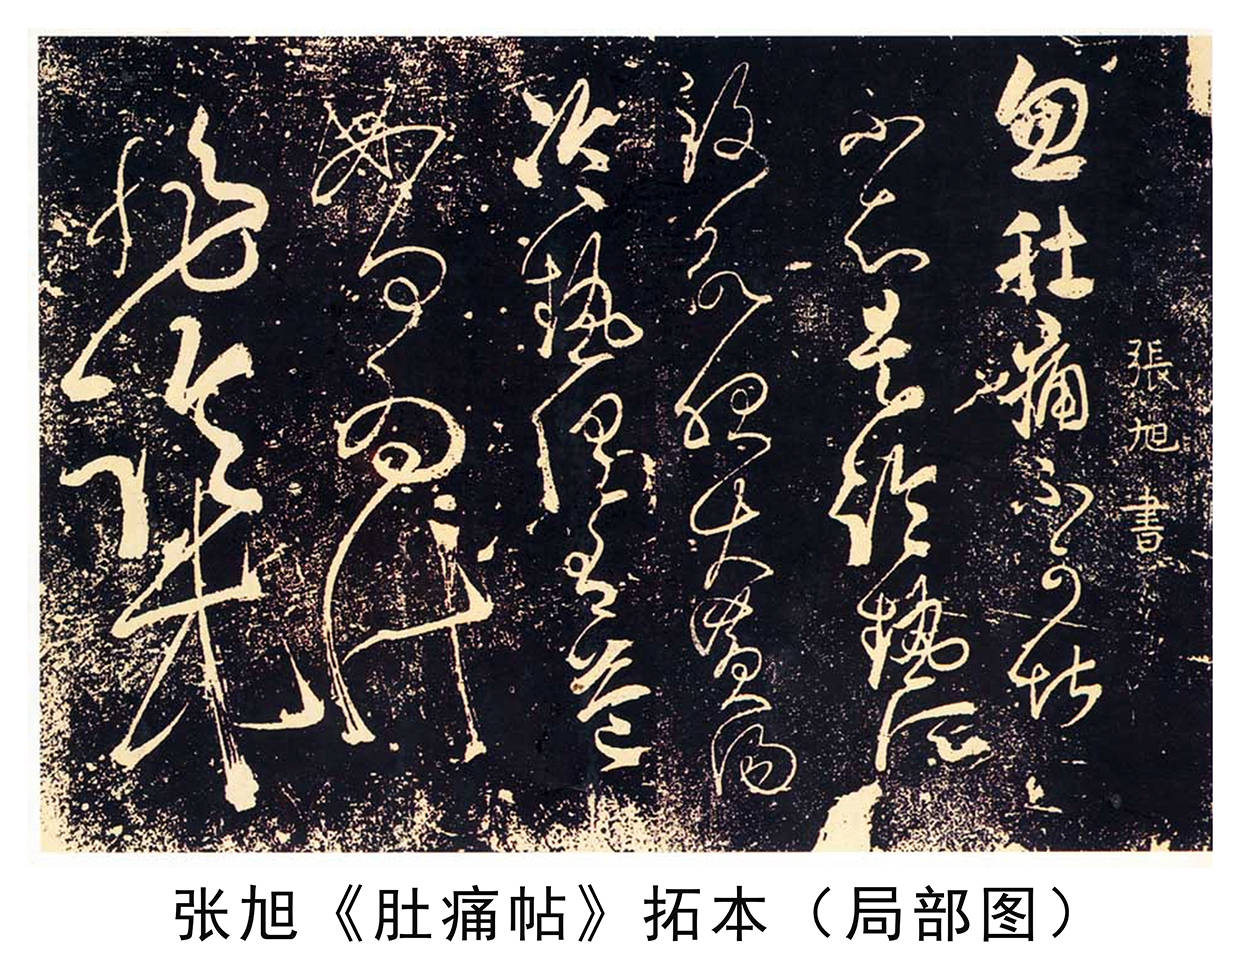 張旭書
忽肚痛不可堪
不知是冷熱所
致欲服大黃湯
冷熱俱有益
如何為計
非臨床
张旭《肚痛帖》拓本（局部图）